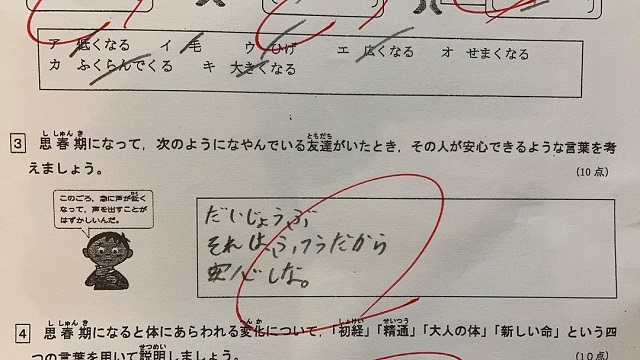 ア 低くなる イ 毛 ウ ひげ エ 広くなる オ せまくなる
カ ふくらんでくる キ 大きくなる
3 思春期になって，次のようになやんでいる友達がいたとき，その人が安心できるような言葉を考
えましょう。 (10点)
このごろ，急に声が低く
なって，声を出すことが
はずかしいんだ。
だいじょうぶ
それは、ふつうだから
安心しな。
4 思春期になると体にあらわれる変化について，「初経」「精通」「大人の体」「新しい命」という四
つの言葉を用いて説明しましょう。 (10点)